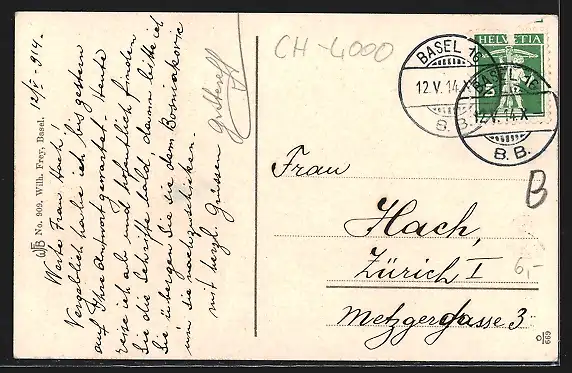 No. 909, Wilh. Frey, Basel.
12/V. 914.
Werte Frau Hach!
Vergeblich habe ich bis gestern
auf Ihre Antwort gewartet. Heute
reise ich ab und hoffentlich finden
Sie die Schrifte bald, dann bitte ich
Sie übergen Sie sie dem Bosniakovic
um sie nachzuschicken.
mit herzl. Grüssen
CH-4000
BASEL 16
12.V.14
B.B.
HELVETIA
BASEL 16
12.V.14.X
B.B.
Frau
B
Hach,
Zürich I
6,-
Metzgergasse 3
669